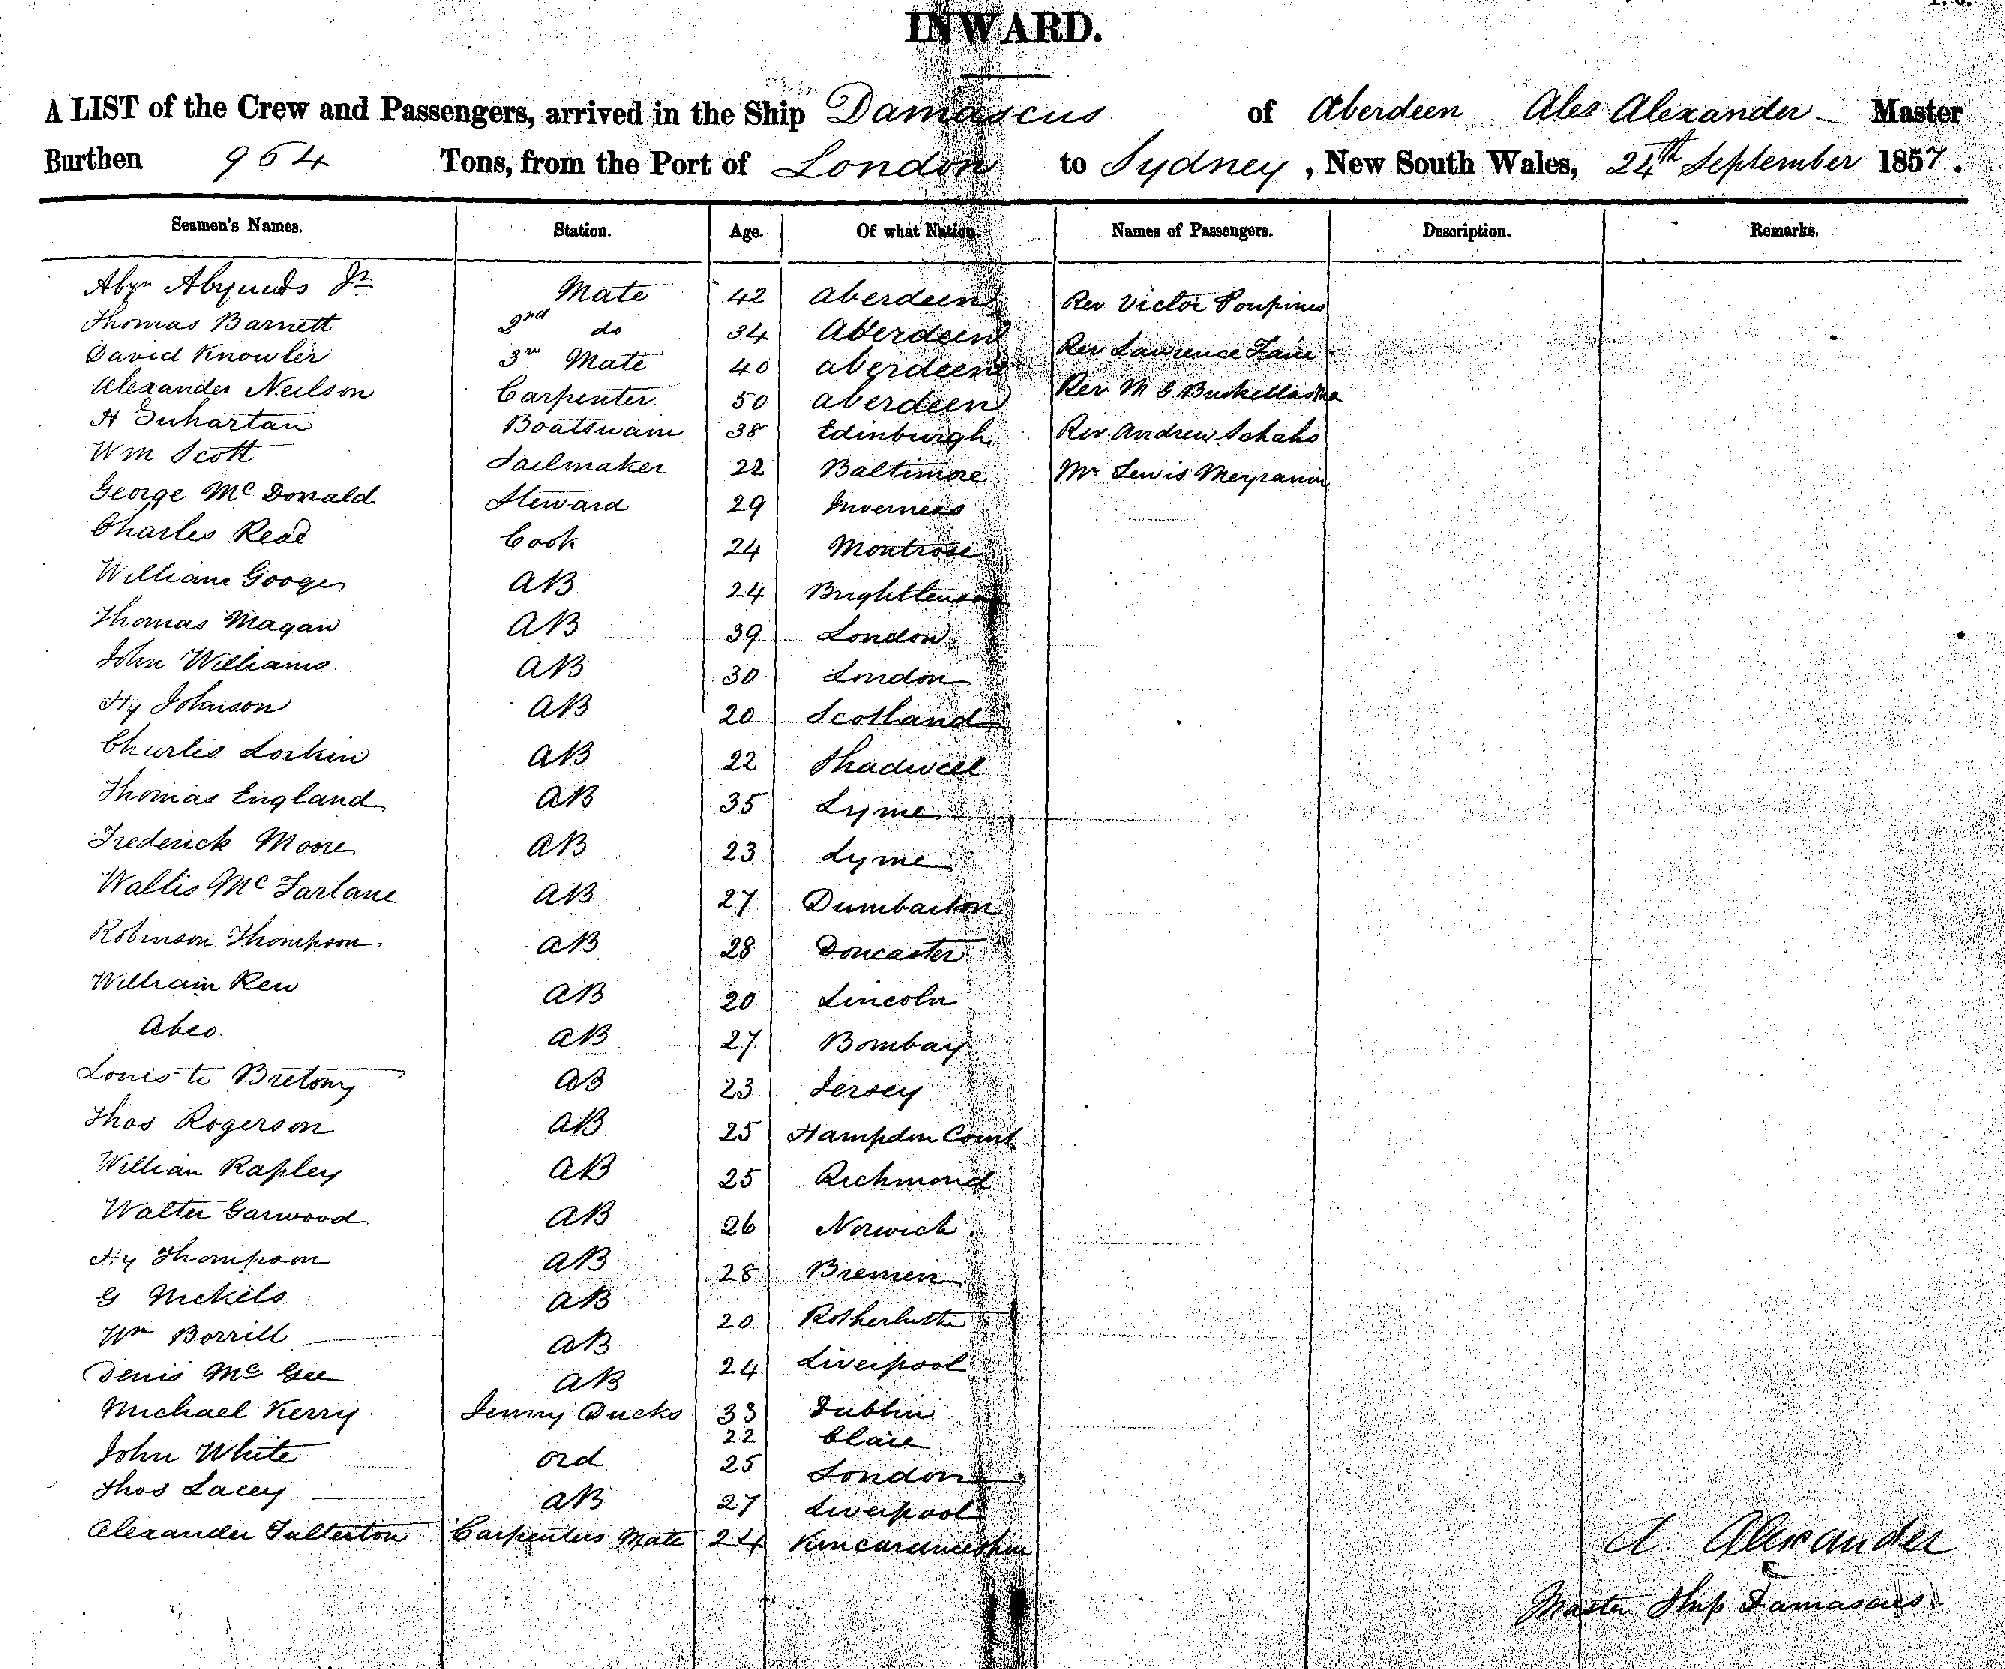 INWARD.
A LIST of the Crew and Passengers, arrived in the Ship Damascus of Aberdeen Alex Alexander Master
Burthen 964 Tons, from the Port of London to Sydney, New South Wales, 24th September 1857.
Seamen's Names. Station. Age. Of what Nation. Names of Passengers. Description. Remarks.
Mate 42 Aberdeen Rev Victor Poupinel
Thomas Barnett 2nd do 34 Aberdeen Rev Lawrence
David Knowler 3rd Mate 40 aberdeen Rev M
Alexander Neilson Carpenter 50 aberdeen Rev Andrew
H Boatswain 38 Edinburgh Mr Lewis
Wm Scott Sailmaker 22 Baltimore
George Mc Donald Steward 29 Inverness
Charles Read Cook 24 Montrose
William AB 24
Thomas Magan AB 39 London
John Williams AB 30 London
Hy Johnson AB 20 Scotland
Charles Lorkin AB 22 Shadwell
Thomas England AB 35 Lyme
Frederick Moore AB 23 Lyme
Wallis Mc Farlane AB 27 Dumbarton
Robinson Thompson AB 28 Doncaster
William Rew AB 20 Lincoln
Abeo AB 27 Bombay
Louis le Bretony AB 23 Jersey
Thos Rogerson AB 25 Hampdon Court
William Rapley AB 25 Richmond
Walter Garwood AB 26 Norwich
Hy Thompson AB 28 Bremen
G Nickels AB 20
Wm Borrill AB 24 Liverpool
Denis Mc Gee AB 33 Dublin
Michael Kerry Jemmy Ducks 22 Clare
John White ord 25 London
Thos Lacey AB 27 Liverpool
Alexander Fullerton Carpenters Mate 24 Kincardineshire
A. Alexander
Master Ship Damascus